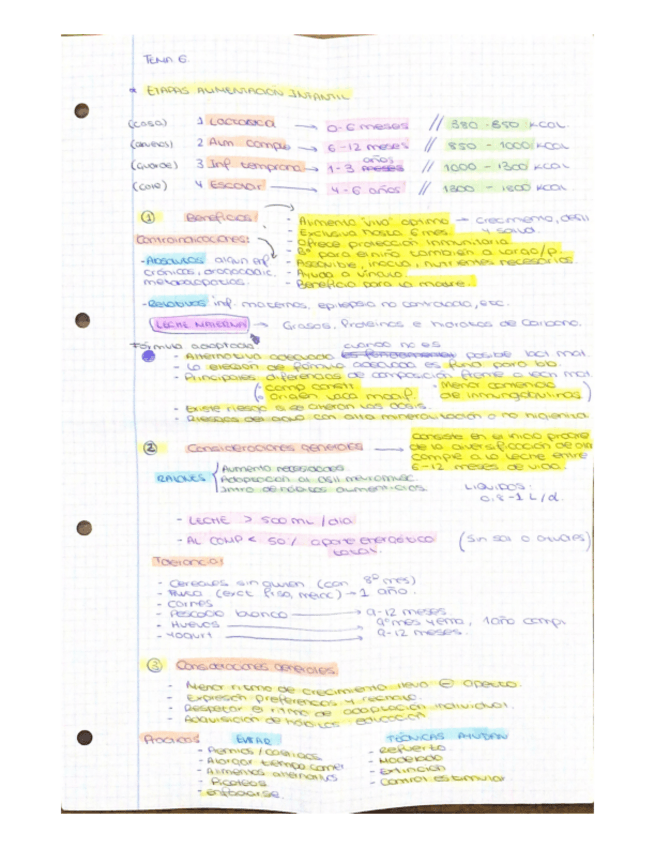 TEMA 6.
* ETAPAS ALIMENTACIÓN INFANTIL
(casa) 1 Lactancia → 0-6 meses // 380-850 KCAL.
2 Alim. comple → 6-12 meses // 850 - 1000 KCAL
(guarde) 3 Inf temprana → 1-3 años meses // 1000 - 1300 KCAL
(cole) 4 Escolar → 4-6 años // 1300 - 1800 KCAL
① Beneficios:
- Alimento "vivo" óptimo → crecimiento, dsll y salud.
- Exclusiva hasta 6 mes.
- Ofrece protección inmunitaria
- Bº para el niño también a largo/p.
- Accesible, inocua, nutrientes necesarios.
- Ayuda a vínculo.
- Beneficio para la madre.
Contraindicaciones:
- Absolutas algun
crónicas,
metabolopatías.
- Relativas inf. maternas, epilepsia no controlada, etc.
LECHE MATERNA → Grasas, Proteínas e hidratos de Carbono.
Fórmula adaptada:
- Alternativa adecuada es fundamental cuando no es posible lact mat.
- La elección de fórmula adecuada es fund para bb.
- Principales diferencias de composición frente a lech mat.
(- comp const - Menor contenido
- origen vaca modif. de inmunoglobulinas)
- Existe riesgo si se alteran las dosis.
- Riesgos de agua con alta mineralización o no higienica
② Consideraciones generales → consiste en el inicio progre
de la diversificación de alim
comple a la leche entre
6-12 meses de vida.
RAZONES { Aumento necesidades
Adaptación al dsll neuromusc.
Intro de hábitos alimenticios.
LÍQUIDOS:
0,8-1 L/d.
- LECHE > 500 ML / día
- AL COMP < 50% aporte energético total. (sin sal o azúcares)
Tolerancia:
- Cereales sin gluten (con 8º mes)
- Fruta (exct fresa, meloc) → 1 año.
- Carnes
- Pescado blanco → 9-12 meses
- Huevos → 9º mes yema, 1 año compl
- Yogurt → 9-12 meses.
③ Consideraciones generales
- Menor ritmo de crecimiento lleva ⊖ apetito.
- Expresan preferencias y rechazo.
- Respetar el ritmo de adaptación individual.
- Adquisición de hábitos educación
Prácticas EVITAR TÉCNICAS AYUDAN
- Premios / castigos - Refuerzo
- Alargar tiempo comer - Modelado
- Alimentos alternativos - Extinción
- Picoteos - Control estimular
- enfadarse.